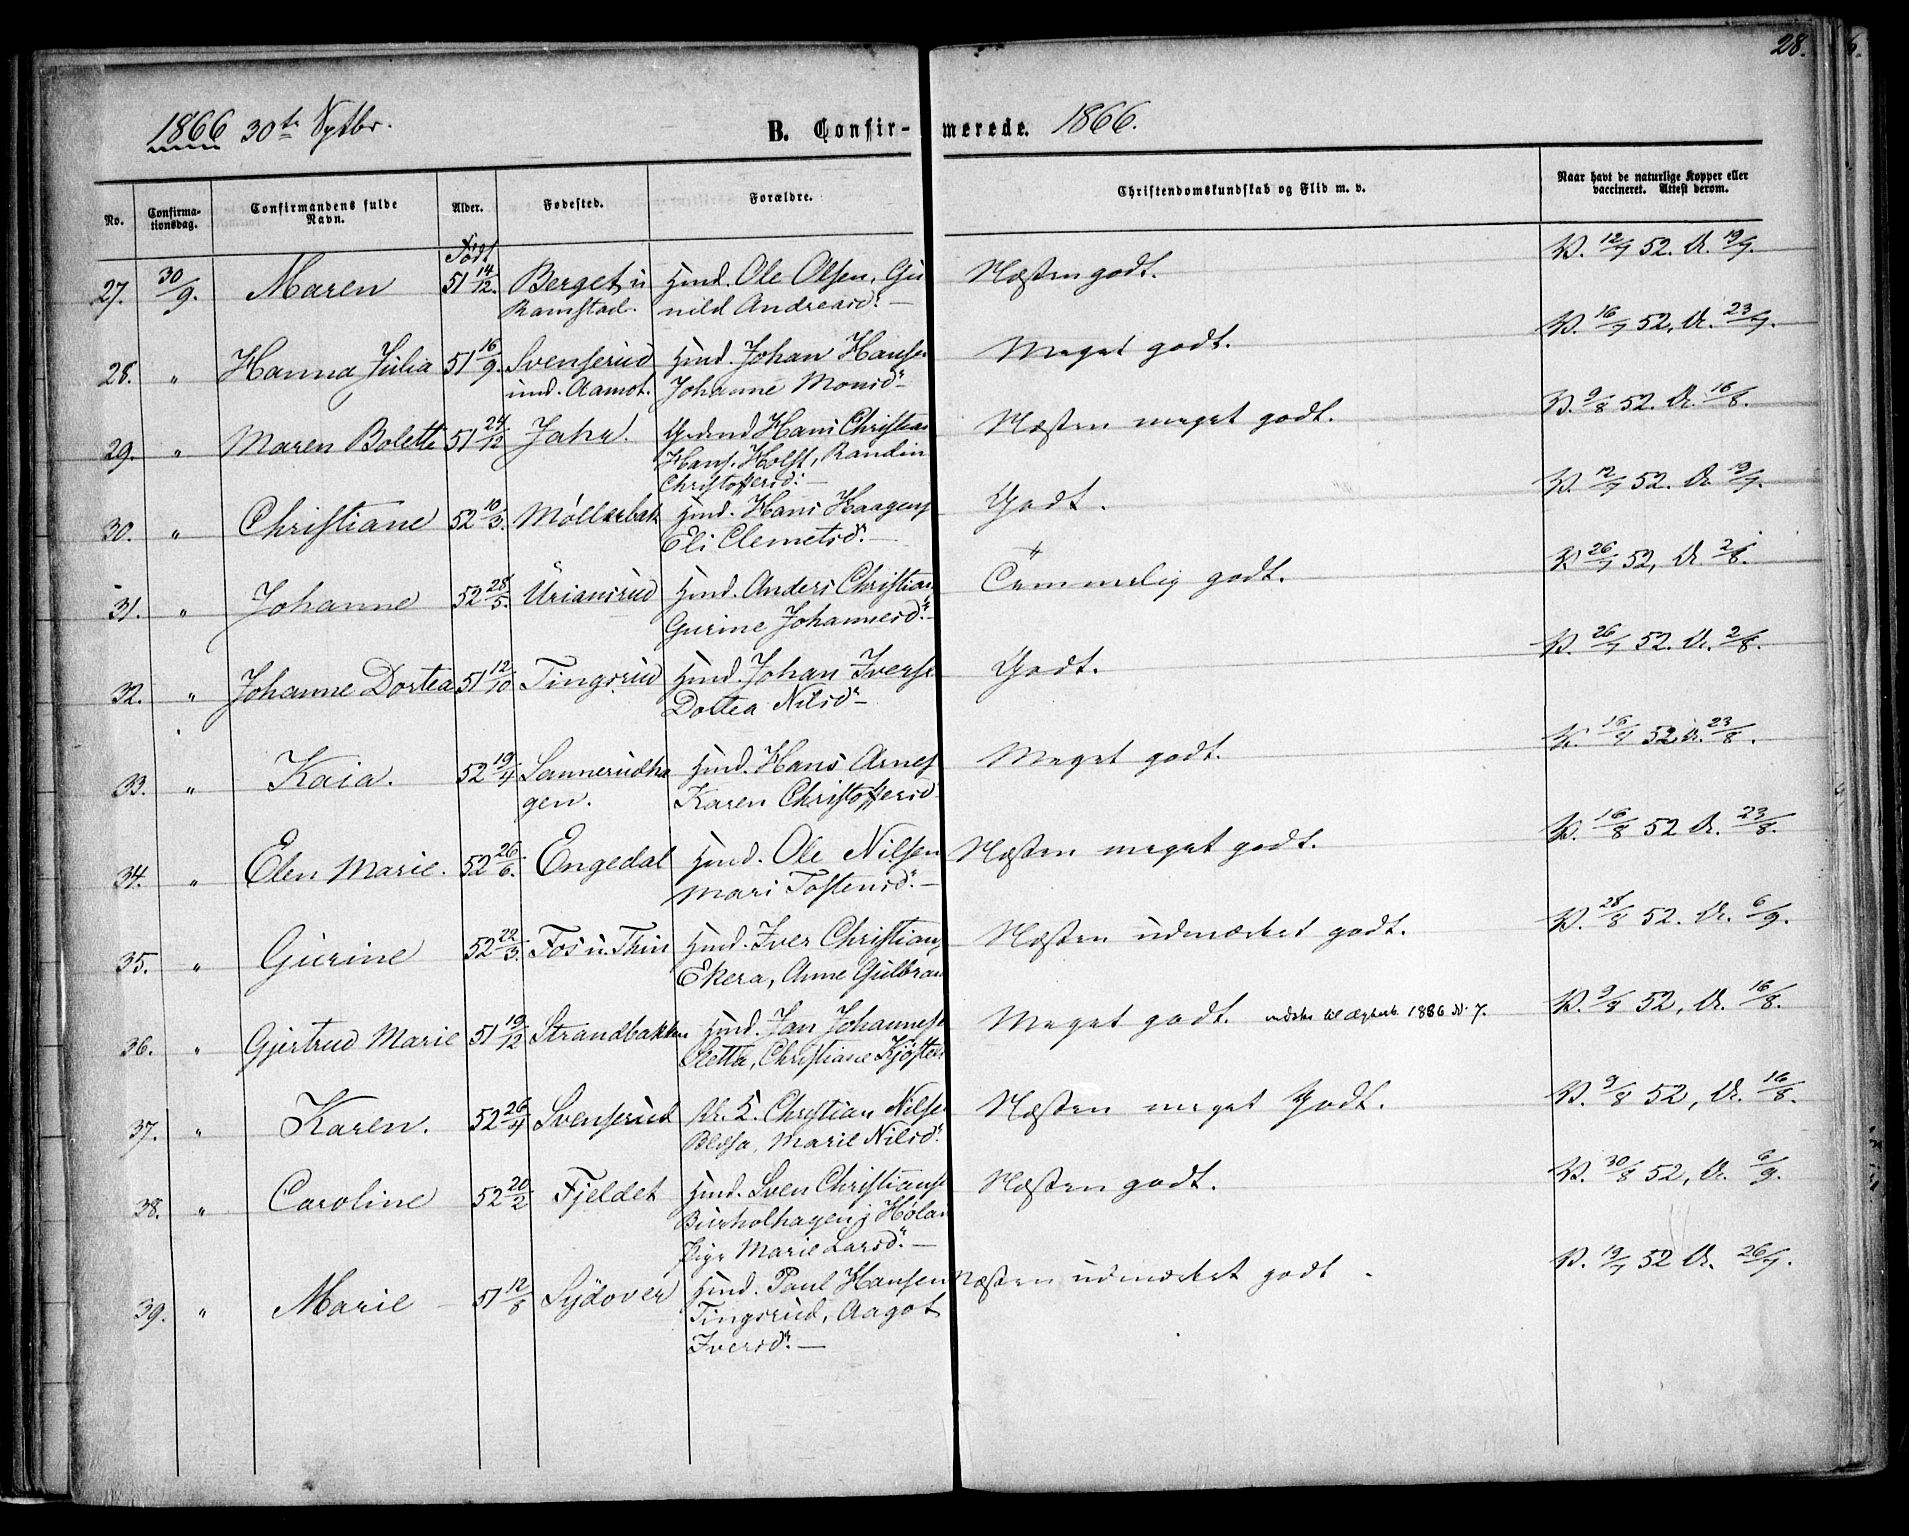 28.
1866 30te Septbr.
B. Confir- merede. 1866.
No.
Confirma-
tionsdag.
Confirmandens fulde
Navn.
Alder.
Fødested.
Forældre.
Christendomskundskab og Flid m. v.
Naar havt de naturlige Kopper eller
vaccineret. Attest derom.
Født
27. 30/9. Maren 51 14/12. Berget u Hmd. Ole Olsen, Gu Næsten godt. V. 12/7 52. A. 19/7.
Ramstad. nild Andreasd. —
28. „ Hanna Julia 51 16/9. Svenserud Hmd. Johan Hanse Meget godt. V. 16/7 52, A. 23/7.
und. Aamot. Johanne Monsd. —
29. „ Maren Bolette 51 24/12 Jahr. Hans Christian Næsten meget godt. V. 9/8 52. A. 16/8.
Hans. Holst, Randin
Christoffersd. —
30. „ Christiane 52 10/3. Møllerbak Hmd. Hans Haagens Godt. V. 12/7 52. A. 19/7.
Eli Clemetsd. —
31. „ Johanne 52 28/5. Uriansrud Hmd. Anders Christian Temmelig godt. V. 26/7 52, A. 2/8.
Gurine Johannesd. —
32. „ Johanne Dortea 51 12/10 Tingsrud Hmd. Johan Iverse Godt. V. 26/7 52. A. 2/8.
Dortea Nilsd. —
33. „ Kaia. 52 19/4 Sannerudha Hmd. Hans Arnes Meget godt. V. 16/8 52. A. 23/8.
gen. Karen Christoffersd.
34. „ Elen Marie. 52 26/6. Engedal Hmd. Ole Nilsen Næsten meget godt. V. 16/8 52 A. 23/8.
Mari Tostensd. —
35. „ Gurine 52 22/3. Fos u. Thin Hmd. Iver Christians Næsten udmærket godt. V. 28/8 52. A. 6/9.
Ekera, Anne Gulbran
36. „ Gjertrud Marie 51 19/12 Strandbakken Hmd. Jan Johannes Meget godt. 1886 N. 7. V. 9/8 52, A. 16/8.
Sletta, Christiane Kjøsten
37. „ Karen. 52 26/4 Svenserud Christian Nilse Næsten meget Godt. V. 9/8 52, A. 16/8.
Marie Nilsd.
38. „ Caroline 52 20/2 Fjeldet Hmd. Sven Christians Næsten godt. V. 30/8 52, A. 6/9.
Burholhagen i Hølan
Pige Marie Larsd. —
39. „ Marie 51 12/8 Sydover Hmd. Paul Hansen Næsten udmærket godt. V. 19/7 52 A. 26/7.
Tingsrud, Aagot
Iversd. —